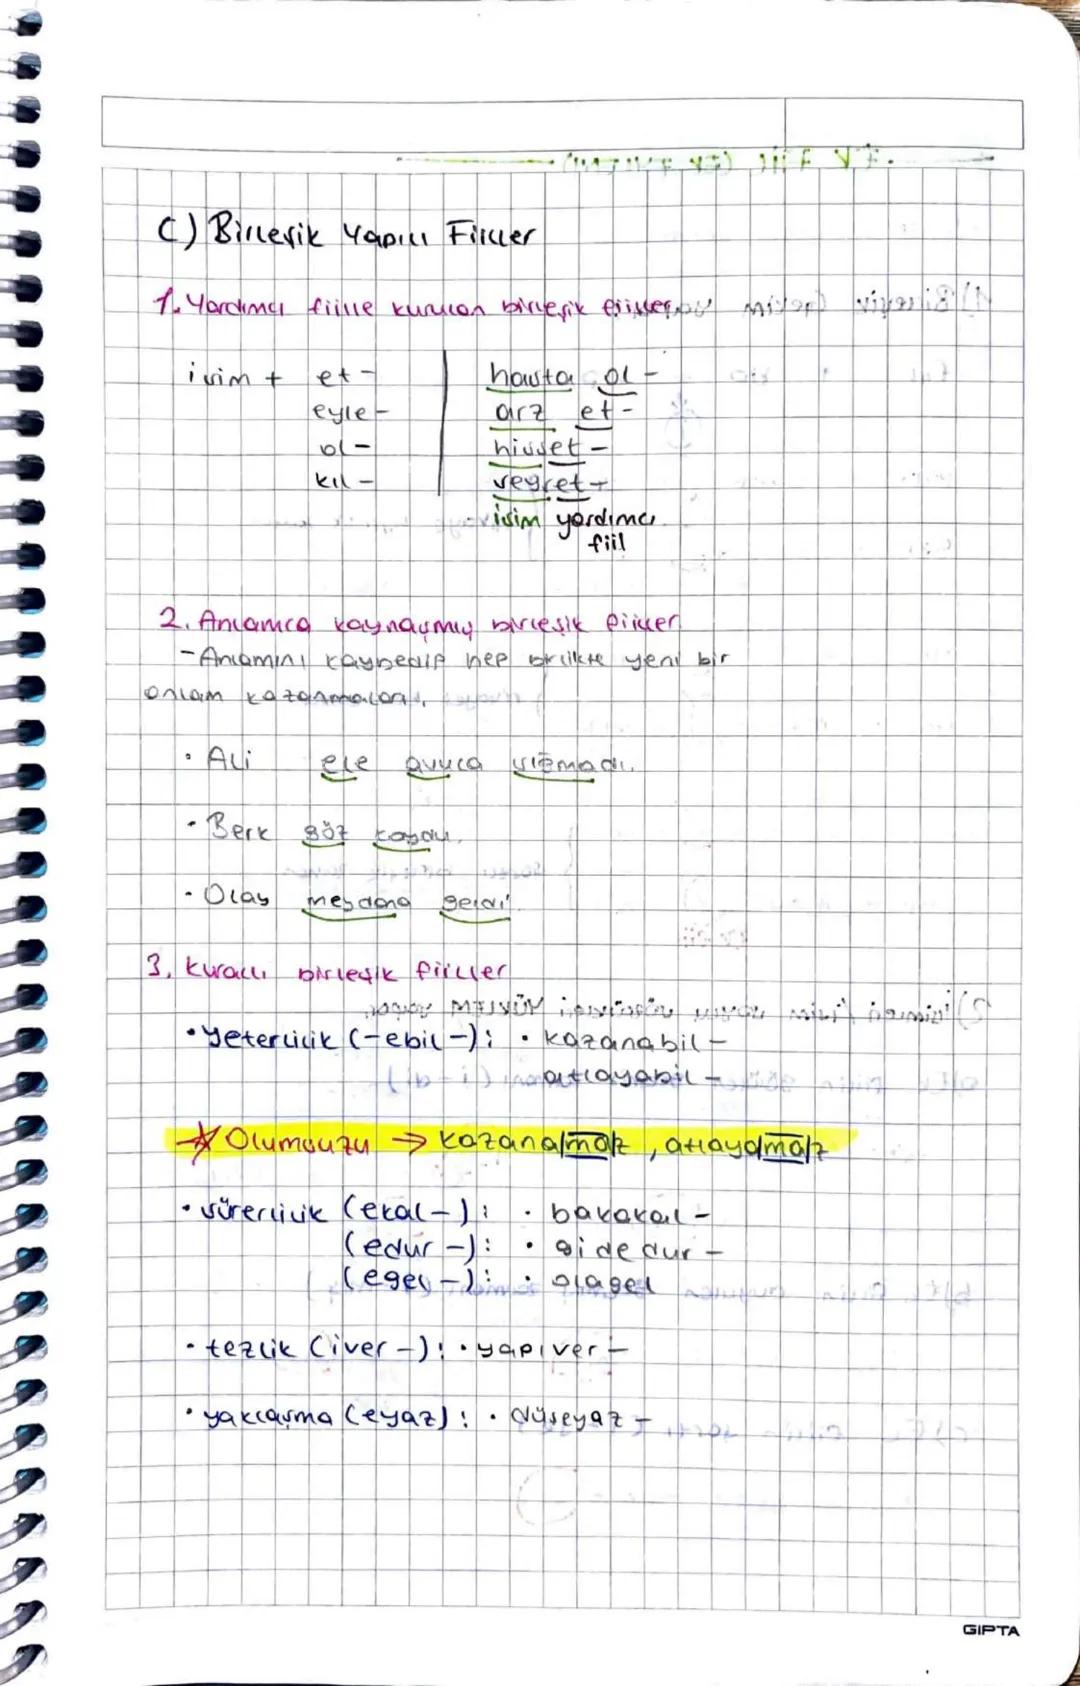 C) Birleşik Yapılı Fiiller
1. Yardımcı fiille kurulan birleşik fiiller
isim + et - hasta ol -
eyle - arz et -
ol - hisset -
kıl - seyret -
isim yardımcı
fiil
2. Anlamca kaynaşmış birleşik fiiller
- Anlamını kaybedip hep birlikte yeni bir
anlam kazanmaları.
• Ali ele avuca sığmadı.
• Berk göz koydu.
• Olay meydana geldi.
3. Kurallı birleşik fiiller
• Yeterlilik (-ebil-): • kazanabil -
atlayabil -
☆ Olumsuzu → kazanamaz, atlayamaz
• sürerlilik (ekal-): • bakakal -
(edur-): • gidedur -
(egel-): • olagel
• tezlik (iver-): • yapıver -
• yaklaşma (eyaz): • düşeyaz -
GIPTA